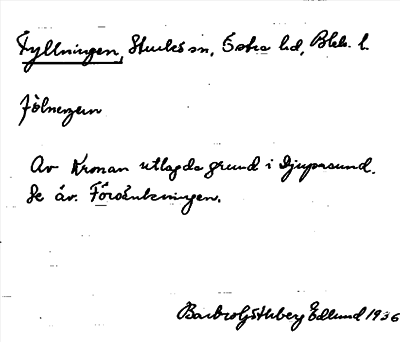 Fyllningen, Sturkö sn, Östra hd, Blek. l.
Fyllningen
Av Kronan utlagda grund i Djupasund.
Se äv. Försänkningen.
Barbro Göthberg Edlund 1936